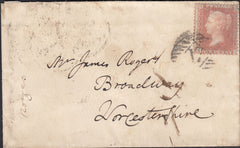 Mr. James Rogers
Broadway
Worcestershire